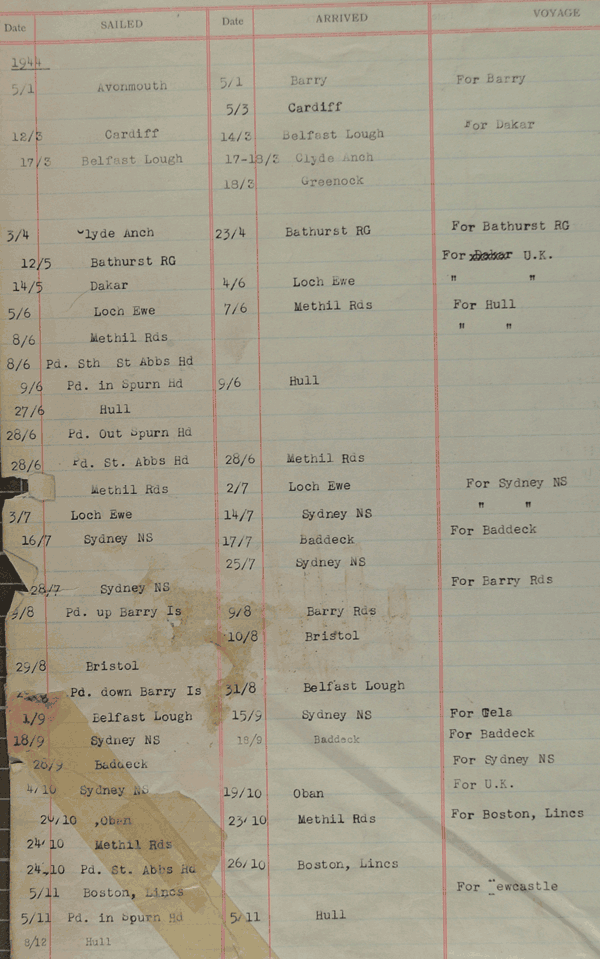 Date SAILED Date ARRIVED VOYAGE
1944
5/1 Avonmouth 5/1 Barry For Barry
5/3 Cardiff
12/3 Cardiff 14/3 Belfast Lough For Dakar
17/3 Belfast Lough 17-18/3 Clyde Anch
18/3 Greenock
3/4 Clyde Anch 23/4 Bathurst RG For Bathurst RG
12/5 Bathurst RG For Dakar U.K.
14/5 Dakar 4/6 Loch Ewe " "
5/6 Loch Ewe 7/6 Methil Rds For Hull
8/6 Methil Rds " "
8/6 Pd. Sth St Abbs Hd
9/6 Pd. in Spurn Hd 9/6 Hull
27/6 Hull
28/6 Pd. Out Spurn Hd
28/6 Pd. St. Abbs Hd 28/6 Methil Rds
Methil Rds 2/7 Loch Ewe For Sydney NS
3/7 Loch Ewe 14/7 Sydney NS " "
16/7 Sydney NS 17/7 Baddeck For Baddeck
25/7 Sydney NS
28/7 Sydney NS For Barry Rds
9/8 Pd. up Barry Is 9/8 Barry Rds
10/8 Bristol
29/8 Bristol
Pd. down Barry Is 31/8 Belfast Lough
1/9 Belfast Lough 15/9 Sydney NS For Tela
18/9 Sydney NS 18/9 Baddeck For Baddeck
28/9 Baddeck For Sydney NS
4/10 Sydney NS 19/10 Oban For U.K.
20/10 ,Oban 23/10 Methil Rds For Boston, Lincs
24/10 Methil Rds
24.10 Pd. St. Abbs Hd 26/10 Boston, Lincs
5/11 Boston, Lincs For Newcastle
5/11 Pd. in Spurn Hd 5/11 Hull
8/12 Hull